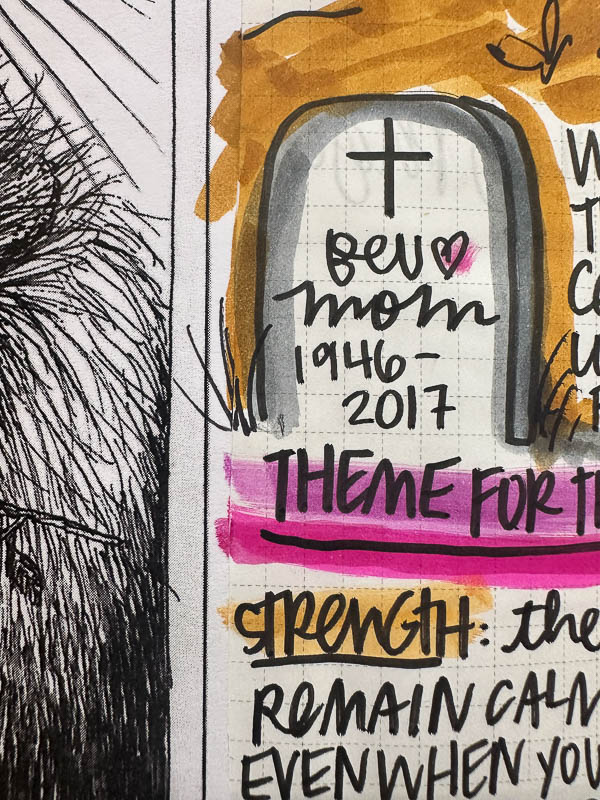 Bev
mom
1946-
2017
THEME FOR
STRENGTH: the
REMAIN CALM
EVEN WHEN YOU